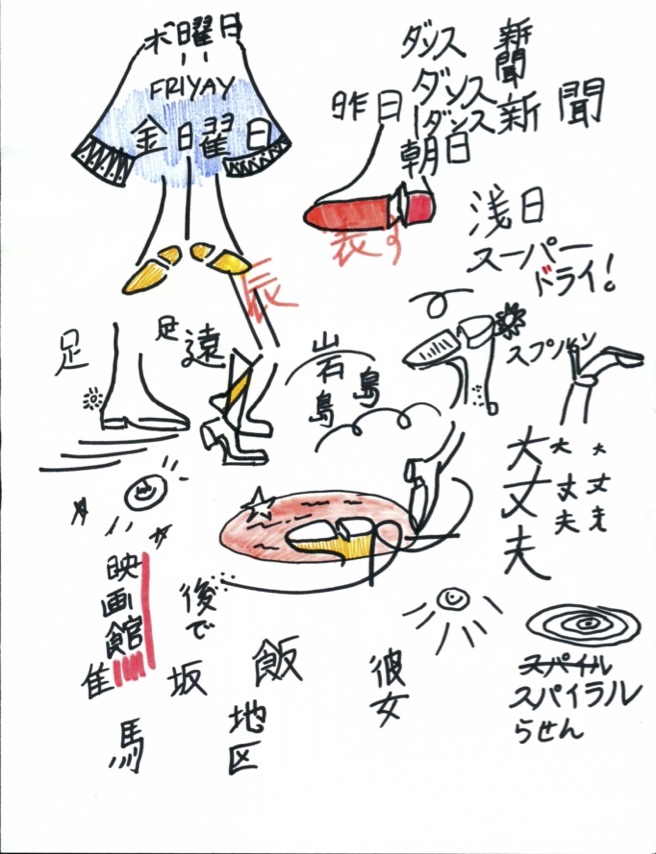 木曜日
FRIYAY
金曜日
ダンス
ダンス
ダンス
新聞
新聞
昨日
朝日
表す
浅日
スーパー
ドライ!
辰
足
足
遠
岩
島
島
スプリン
大丈夫
大丈夫
大丈夫
映画館
後で
隹
坂
飯
彼女
馬
地区
スパイル
スパイラル
らせん